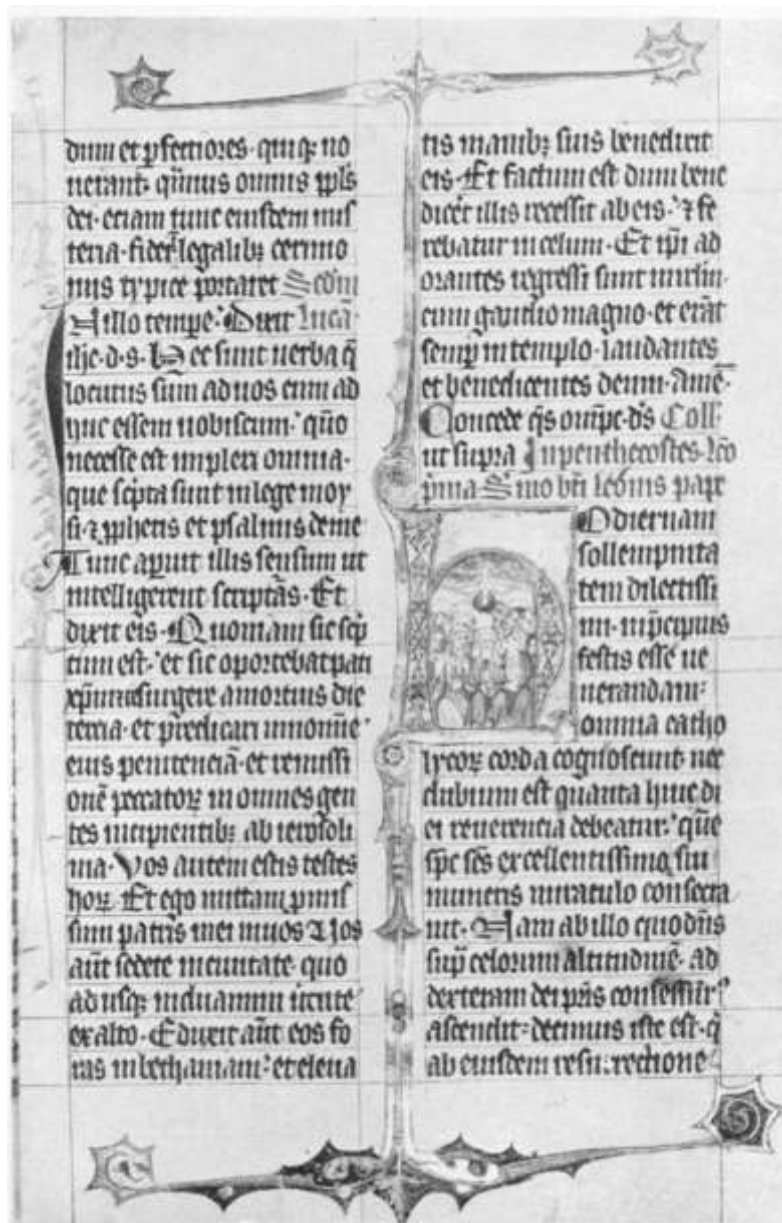 dum et perfectiores · quique no
uerant · quatinus omnis ppls
dei · eciam tunc eiusdem mis
teria · fidei legalib; cerimo
niis typice portaret Scdm
In illo tempe · Dixit lucā
ihc · d · s · hec sunt uerba q̄
locutus sum ad uos cum ad
huc essem uobiscum · quō
necesse est impleri omnia ·
que scpta sunt in lege moy
si · ⁊ pphetis et psalmis de me
Tunc apuit illis sensum ut
intelligerent scripturas · Et
dixit eis · Quoniam sic scp
tum est · et sic oportebat pati
xpm · resurgere a mortuis die
tercia · et predicari in noīe
eius penitenciā · et remissi
onē peccatoꝝ in omnes gen
tes incipientib; ab ierosoli
ma · Vos autem estis testes
hoꝝ · Et ego mittam pmis
sum patris mei in uos Vos
aūt sedete in ciuitate · quo
adusq; induamini uirtute
ex alto · Eduxit aūt eos fo
ras in bethaniam · et eleua
tis manib; suis benedixit
eis · Et factum est dum bene
dicer̄ illis recessit ab eis · ⁊ fe
rebatur in celum · Et ipi ad
orantes regressi sunt in irlm ·
cum gaudio magno · et erāt
semp in templo · laudantes
et benedicentes deum · Amē ·
Concede qs ompc · ds Coll
ut supra In penthecostes · lco
pma Smo bti leonis pape
Hodiernam
sollempnita
tem dilectissi
mi · in pcipuis
festis esse ue
nerandam ·
omnia catho
lycoꝝ corda cognoscunt · nec
dubium est quanta huic di
ei reuerencia debeatur · quē
spc scs excellentissimo sui
muneris miraculo consecra
uit · Nam ab illo quo dns
sup celorum altitudinē · ad
dexteram dei pris consessur
ascendit · decimus iste est · q
ab eiusdem resurrectione